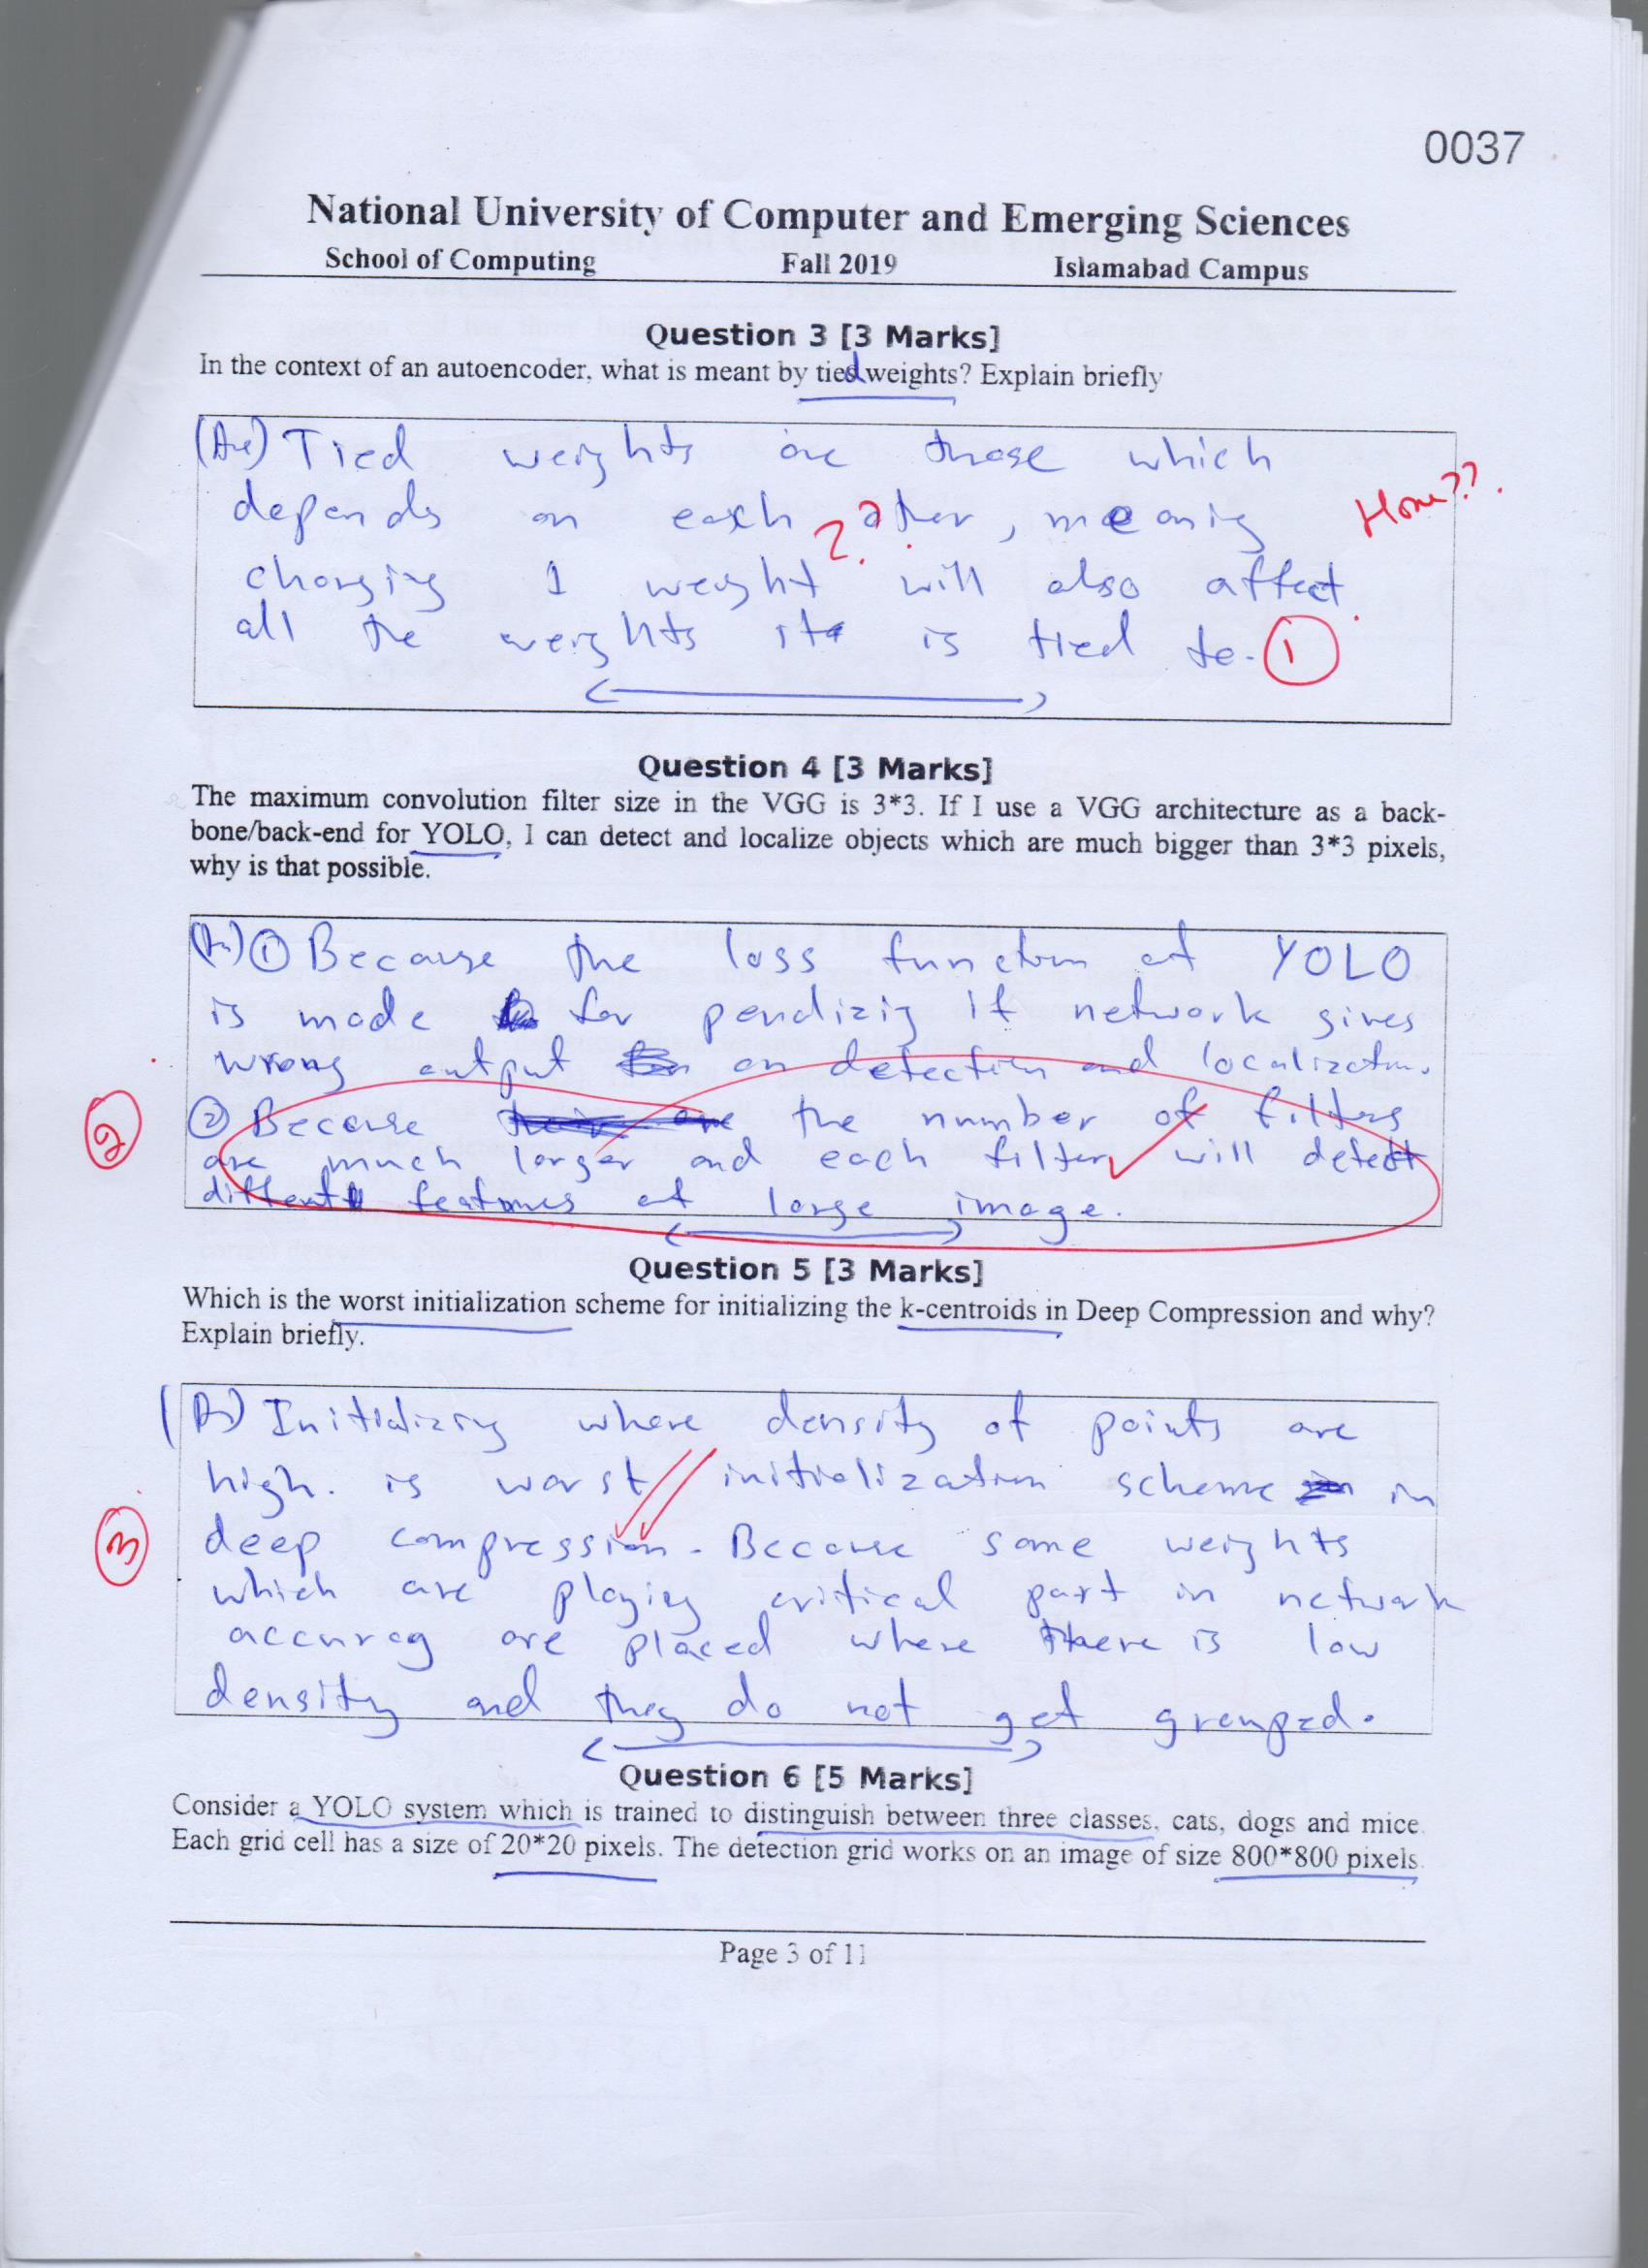 0037
National University of Computer and Emerging Sciences
School of Computing Fall 2019 Islamabad Campus
Question 3 [3 Marks]
In the context of an autoencoder, what is meant by tied weights? Explain briefly
Tied weights are those which
depends on each other, meaning
?? 
changing 1 weight will also affect
all the weights it is tied to. 1
Question 4 [3 Marks]
The maximum convolution filter size in the VGG is 3*3. If I use a VGG architecture as a back-
bone/back-end for YOLO, I can detect and localize objects which are much bigger than 3*3 pixels,
why is that possible.
① Because the loss function of YOLO
is made for penalizig if network gives
wrong output on detection and localization.
2
② Because the number of filters
are much larger and each filter will detect
different features of large image.
Question 5 [3 Marks]
Which is the worst initialization scheme for initializing the k-centroids in Deep Compression and why?
Explain briefly.
Initializing where density of points are
high. is worst initialization scheme in
3
deep compression. Because some weights
which are playing critical part in network
accuracy are placed where there is low
density and they do not get grouped.
Question 6 [5 Marks]
Consider a YOLO system which is trained to distinguish between three classes, cats, dogs and mice.
Each grid cell has a size of 20*20 pixels. The detection grid works on an image of size 800*800 pixels.
Page 3 of 11